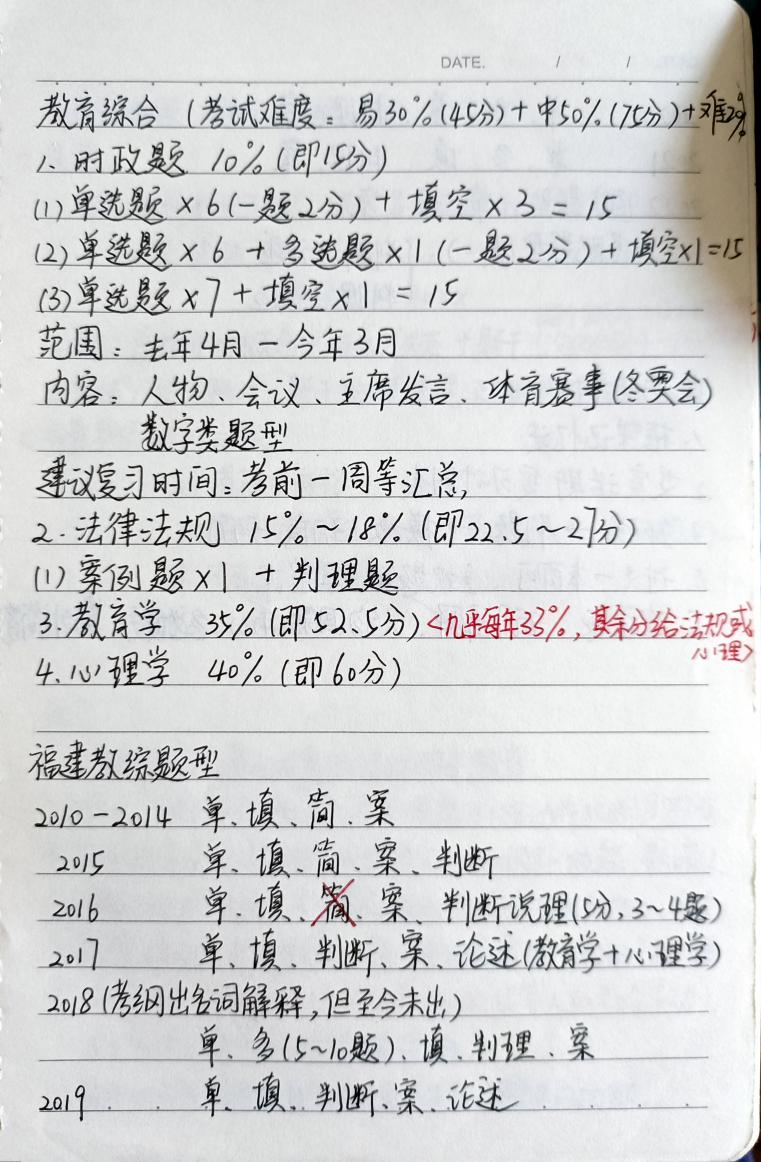 DATE. / /
教育综合（考试难度：易30%(45分)+中50%(75分)+难20%
1、时政题 10%(即15分)
(1)单选题×6(一题2分)+填空×3=15
(2)单选题×6+多选题×1(一题2分)+填空×1=15
(3)单选题×7+填空×1=15
范围：去年4月—今年3月
内容：人物、会议、主席发言、体育赛事(冬奥会)
数字类题型
建议复习时间：考前一周等汇总,
2.法律法规 15%~18%(即22.5~27分)
(1)案例题×1+判理题
3.教育学 35%(即52.5分)<几乎每年33%,其余分给法规或
心理>
4.心理学 40%(即60分)
福建教综题型
2010-2014 单、填、简、案
2015 单、填、简、案、判断
2016 单、填、简、案、判断说理(5分,3~4题)
2017 单、填、判断、案、论述(教育学+心理学)
2018(考纲出名词解释,但至今未出)
单、多(5~10题)、填、判理、案
2019 单、填、判断、案、论述